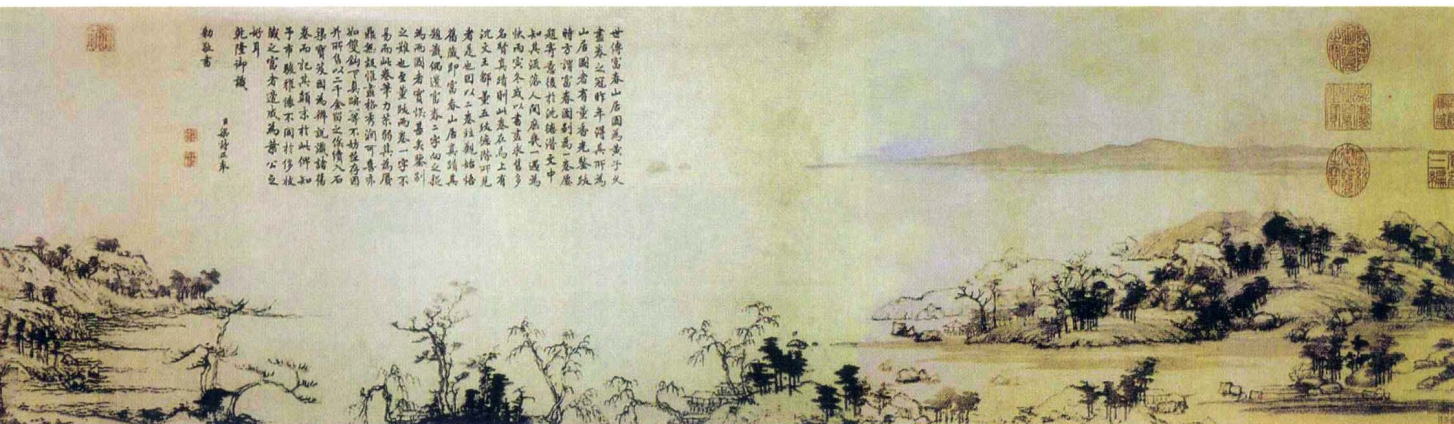 世傳富春山居圖為黃子久
畫卷之冠昨年得其所為
山居圖者有董香光鑒跋
時方謂富春圖別為一卷屢
題寄意後於沈德潛文中
知其流落人間庶幾一遇為
快丙寅冬或以書畫求售多
名賢真蹟則此卷在焉上有
沈文王鄒董五跋德潛所見
者是也因以二卷並觀始悟
舊藏即富春山居真蹟其
題籤偶遺富春二字向之疑
為兩圖者實悞甚矣鑒別
之難也至董跋兩卷一字不
易而此卷筆力苶弱其為贗
鼎無疑惟畫格秀潤可喜亦
如雙鈎下真蹟一等不妨並存因
并所售以二千金留之俾續入石
渠寶笈因為辨說識諸舊
卷而記其顛末於此俾知
予市駿雅懷不同於侈收
藏之富者適成為葉公之
好耳
乾隆御識
臣梁詩正奉
勅敬書